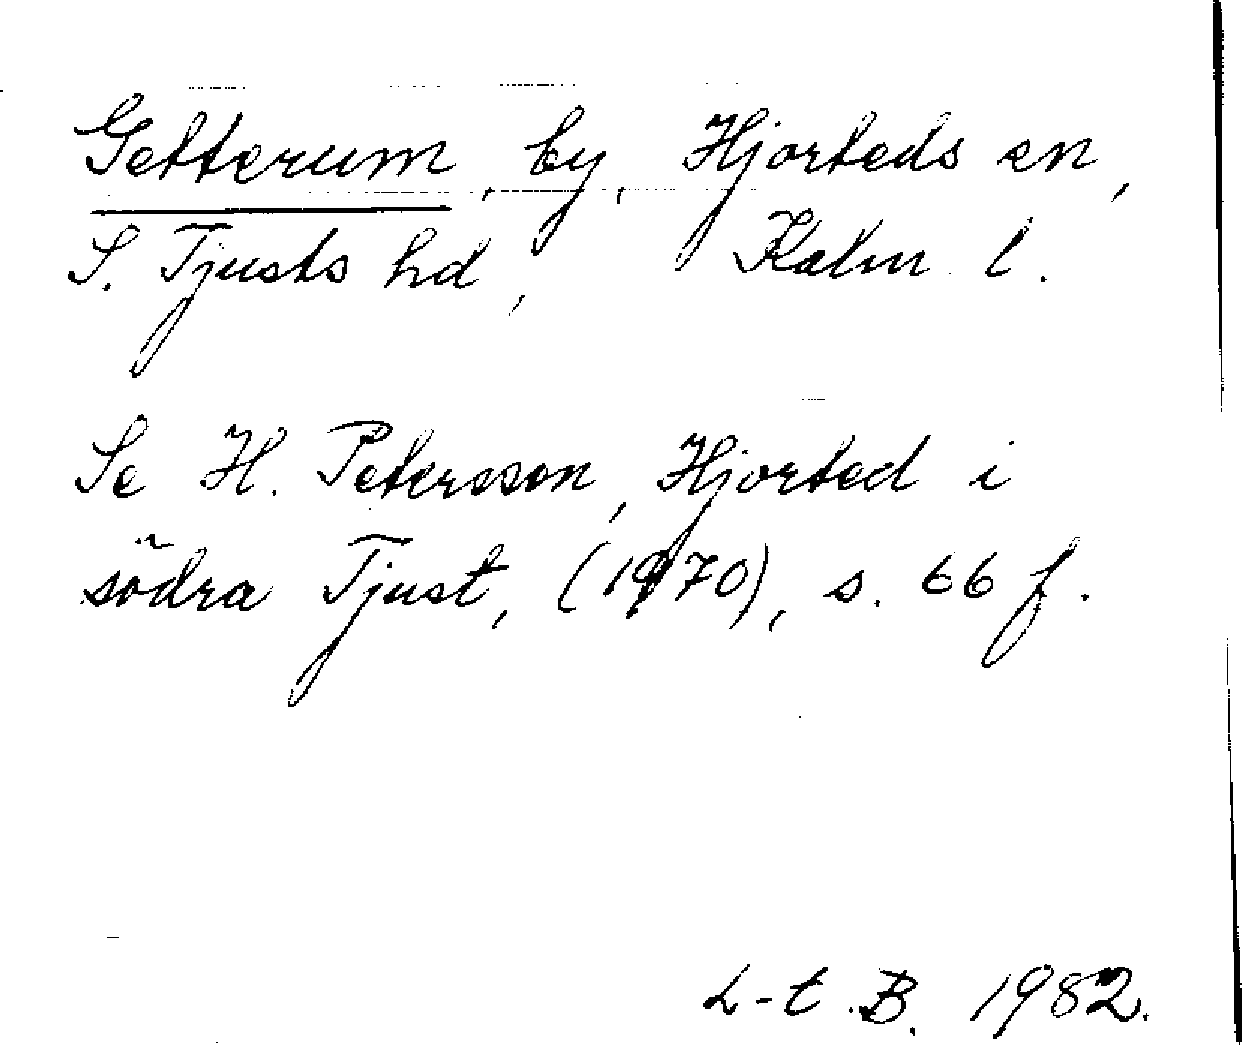 Getterum, by, Hjorteds sn,
S. Tjusts hd, Kalm. l.
Se H. Petersson, Hjorted i
södra Tjust, (1970), s. 66 f.
L-t B. 1982.